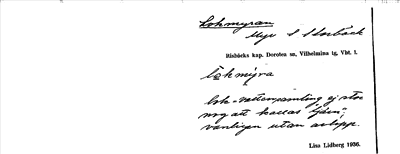 Lokmyran
Myr S Storbäck
Risbäcks kap. Dorotea sn, Vilhelmina tg, Vbt. l.
lo̱kmy̱ra
lok = vattensamling ej stor
nog att kallas "tjärn",
vanligen utan avlopp.
Lisa Lidberg 1936.